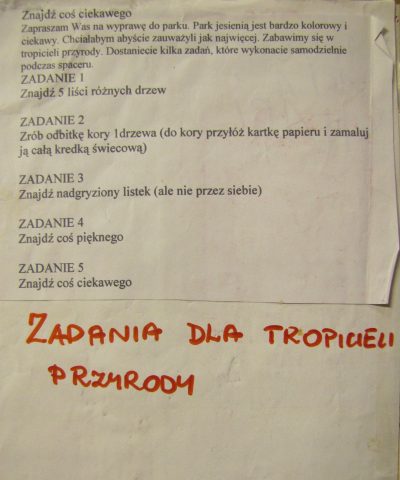 Znajdź coś ciekawego
Zapraszam Was na wyprawę do parku. Park jesienią jest bardzo kolorowy i
ciekawy. Chciałabym abyście zauważyli jak najwięcej. Zabawimy się w
tropicieli przyrody. Dostaniecie kilka zadań, które wykonacie samodzielnie
podczas spaceru.
ZADANIE 1
Znajdź 5 liści różnych drzew
ZADANIE 2
Zrób odbitkę kory 1drzewa (do kory przyłóż kartkę papieru i zamaluj
ją całą kredką świecową)
ZADANIE 3
Znajdź nadgryziony listek (ale nie przez siebie)
ZADANIE 4
Znajdź coś pięknego
ZADANIE 5
Znajdź coś ciekawego
ZADANIA DLA TROPICIELI
PRZYRODY